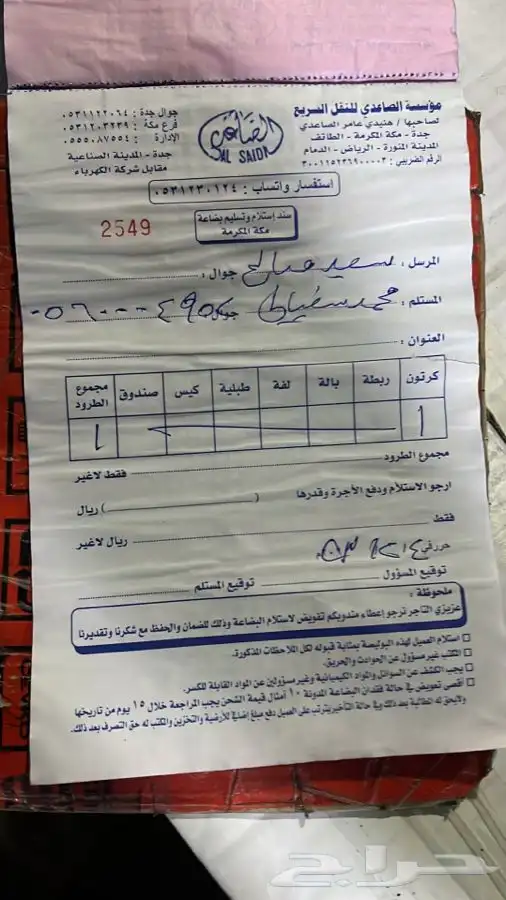 مؤسسة الصاعدي للنقل السريع
لصاحبها / هنيدي عامر الصاعدي
جدة - مكة المكرمة - الطائف
المدينة المنورة - الرياض - الدمام
الرقم الضريبي : ٣٠٠١١٥٢٣٦٩٠٠٠٠٣
الصاعدي
AL SAIDI
جوال جدة : ٠٥٣١١٢٢٠٦٤
فرع مكة : ٠٥٣١٢٠٣٢٣٩
الإدارة : ٠٥٥٥٠٨٧٥٥٤
جدة - المدينة الصناعية
مقابل شركة الكهرباء
استفسار واتساب : ٠٥٣١٢٣٠١٢٤
سند إستلام وتسليم بضاعة
مكة المكرمة
2549
المرسل : سعيد صالح جوال :
المستلم : محمد جوال
العنوان :
كرتون ربطة بالة لفة طبلية كيس صندوق مجموع الطرود
١ ١
مجموع الطرود فقط لاغير
ارجو الاستلام ودفع الأجرة وقدرها ( ) ريال
فقط ريال لاغير
حرر في
توقيع المسؤول توقيع المستلم
ملحوظة :
عزيزي التاجر نرجو إعطاء مندوبكم تفويض لاستلام البضاعة وذلك للضمان والحفظ مع شكرنا وتقديرنا
استلام العميل لهذه البوليصة بمثابة قبوله لكل الملاحظات المذكورة.
المكتب غير مسؤول عن الحوادث والحريق.
يجب الكشف عن السوائل والمواد الكيميائية وغير مسؤولين عن المواد القابلة للكسر.
أقصى تعويض في حالة فقدان البضاعة المدونة ١٠ أمثال قيمة الشحن يجب المراجعة خلال ١٥ يوم من تاريخها
ولايحق له المطالبة بعد ذلك في حالة التأخير يترتب على العميل دفع مبلغ إضافي للأرضية والتخزين والمكتب له حق التصرف بعد ذلك.
حراج